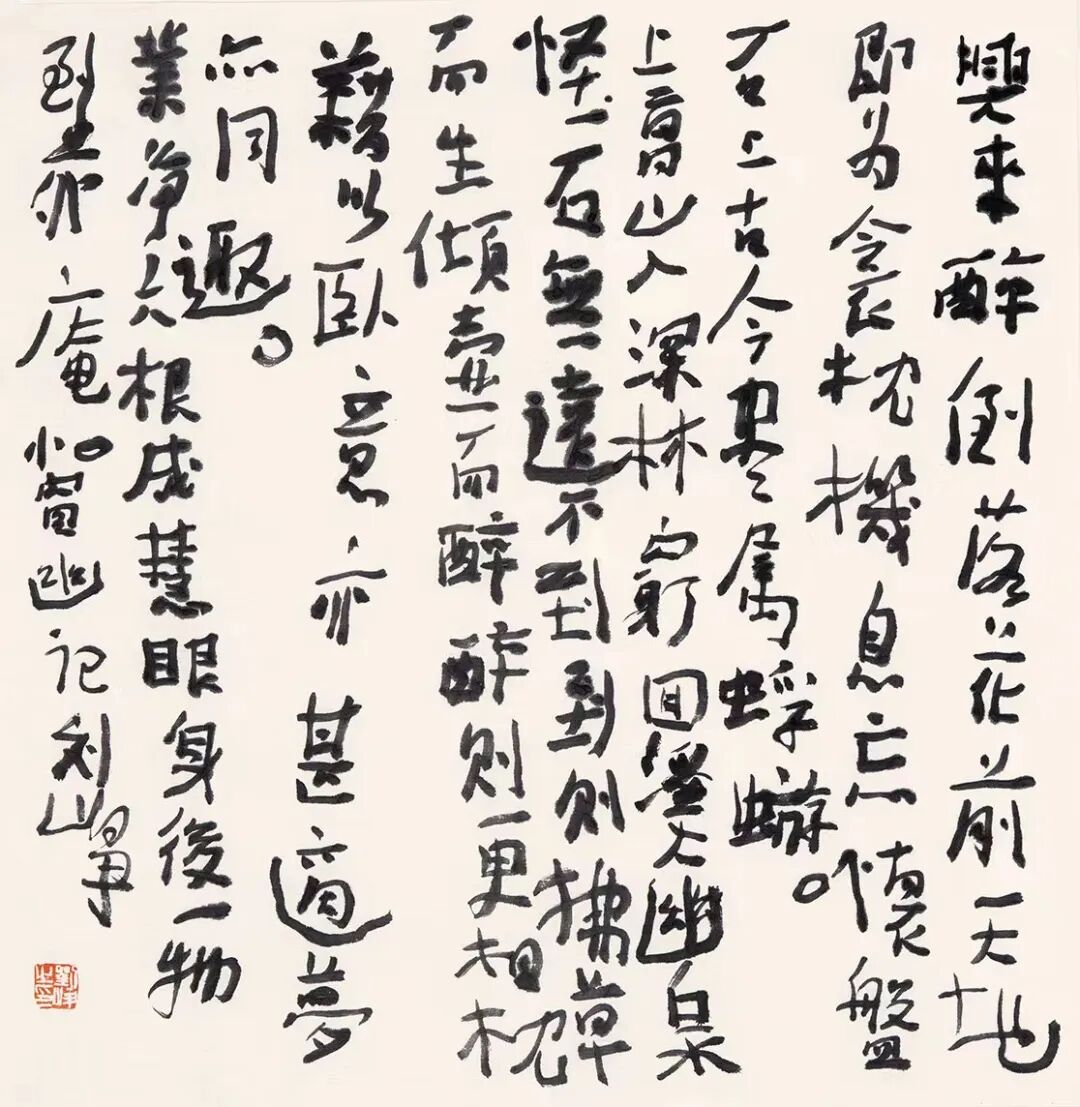 興來醉倒落花前天地
即为衾枕機息忘懷盤
石上古今尽属蜉蝣。
上高山入深林窮回溪幽泉
怪石無遠不到到則拂草
而坐傾壺而醉醉則更相枕
藉以臥意亦甚適夢
亦同趣。
業净六根成慧眼身後一物
到茅庵 小窗幽记 刘峥